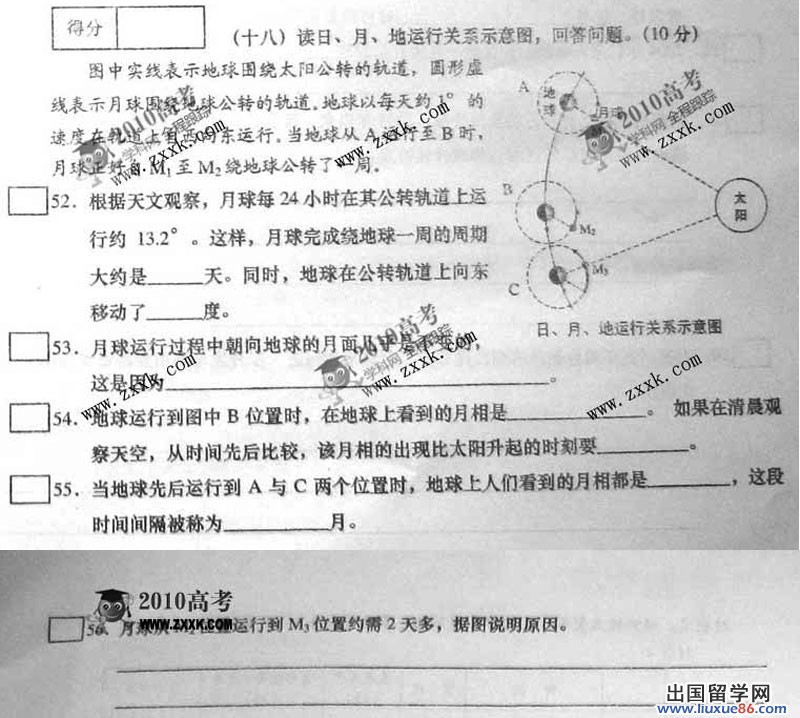 得分
(十八) 读日、月、地运行关系示意图，回答问题。(10分)
图中实线表示地球围绕太阳公转的轨道，圆形虚
线表示月球围绕地球公转的轨道。地球以每天约1°的
速度在轨道上自西向东运行。当地球从A运行至B时，
月球正好自M₁至M₂绕地球公转了一周。
52．根据天文观察，月球每24小时在其公转轨道上运
行约 13.2°。这样，月球完成绕地球一周的周期
大约是______天。同时，地球在公转轨道上向东
移动了______度。
53．月球运行过程中朝向地球的月面几乎是不变的，
这是因为______。
54．地球运行到图中B位置时，在地球上看到的月相是______。如果在清晨观
察天空，从时间先后比较，该月相的出现比太阳升起的时刻要______。
55．当地球先后运行到A与C两个位置时，地球上人们看到的月相都是______，这段
时间间隔被称为______月。
A
地球
月球
B
M₂
太阳
M₃
C
日、月、地运行关系示意图
56．月球从 位置运行到M₃位置约需2天多，据图说明原因。
2010高考
学科网 全程跟踪
www.zxxk.com
2010高考
学科网 全程跟踪
www.zxxk.com
2010高考
学科网 全程跟踪
www.zxxk.com
www.zxxk.com
www.zxxk.com
www.zxxk.com
2010高考
WWW.ZXXK.COM
出国留学网
www.liuxue86.com